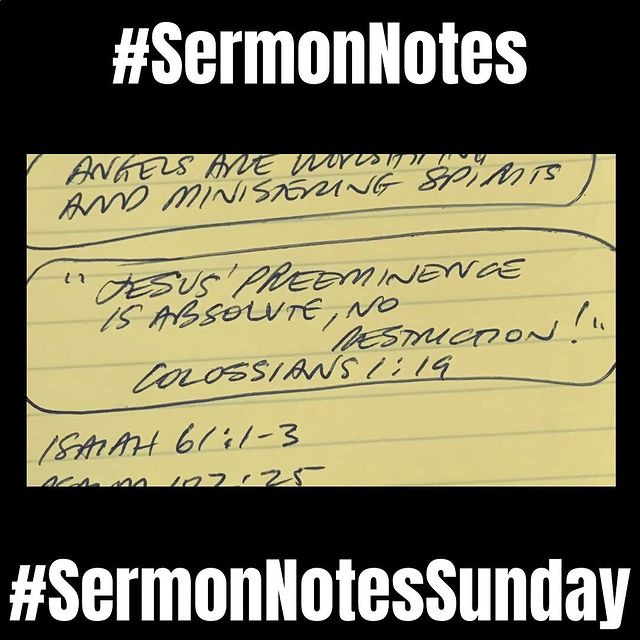 #SermonNotes
ANGELS ARE WORSHIPING
AND MINISTERING SPIRITS
"JESUS' PREEMINENCE
IS ABSOLUTE, NO
RESTRICTION!"
COLOSSIANS 1:19
ISAIAH 61:1-3
:25
#SermonNotesSunday